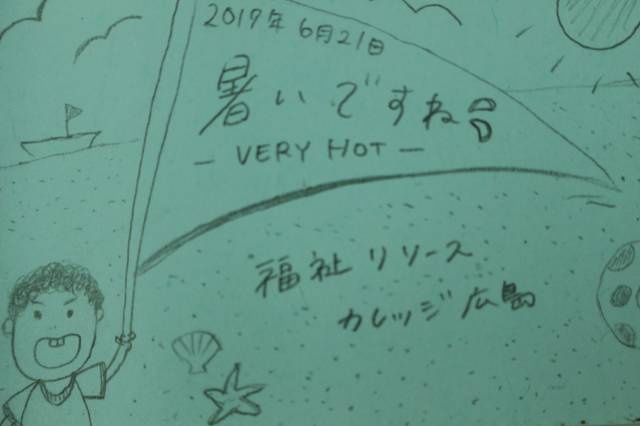 2017年 6月21日
暑いですね。
- VERY HOT -
福祉リソース
カレッジ広島